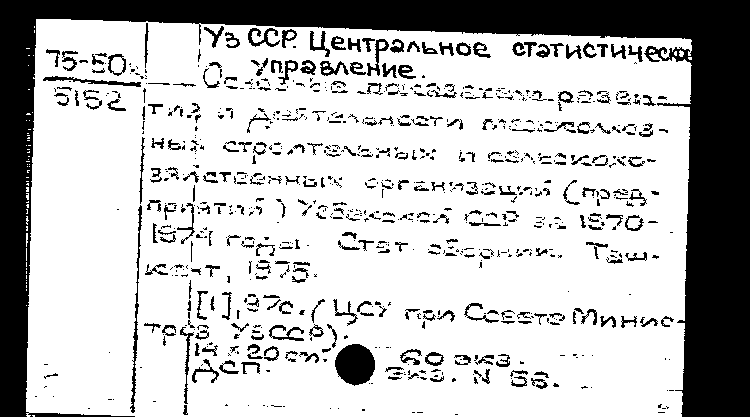 75-50
5152
Уз ССР. Центральное статистическое
управление.
Основные показатели разви-
тия и деятельности межколхоз-
ных строительных и сельскохо-
зяйственных организаций (пред-
приятий) Узбекской ССР за 1970-
1974 годы. Стат. сборник. Таш-
кент, 1975.
[1], 97с. (ЦСУ при Совете Минис-
тров УзССР).
14 × 20 см. 60 экз.
ДСП. Экз. N 56.